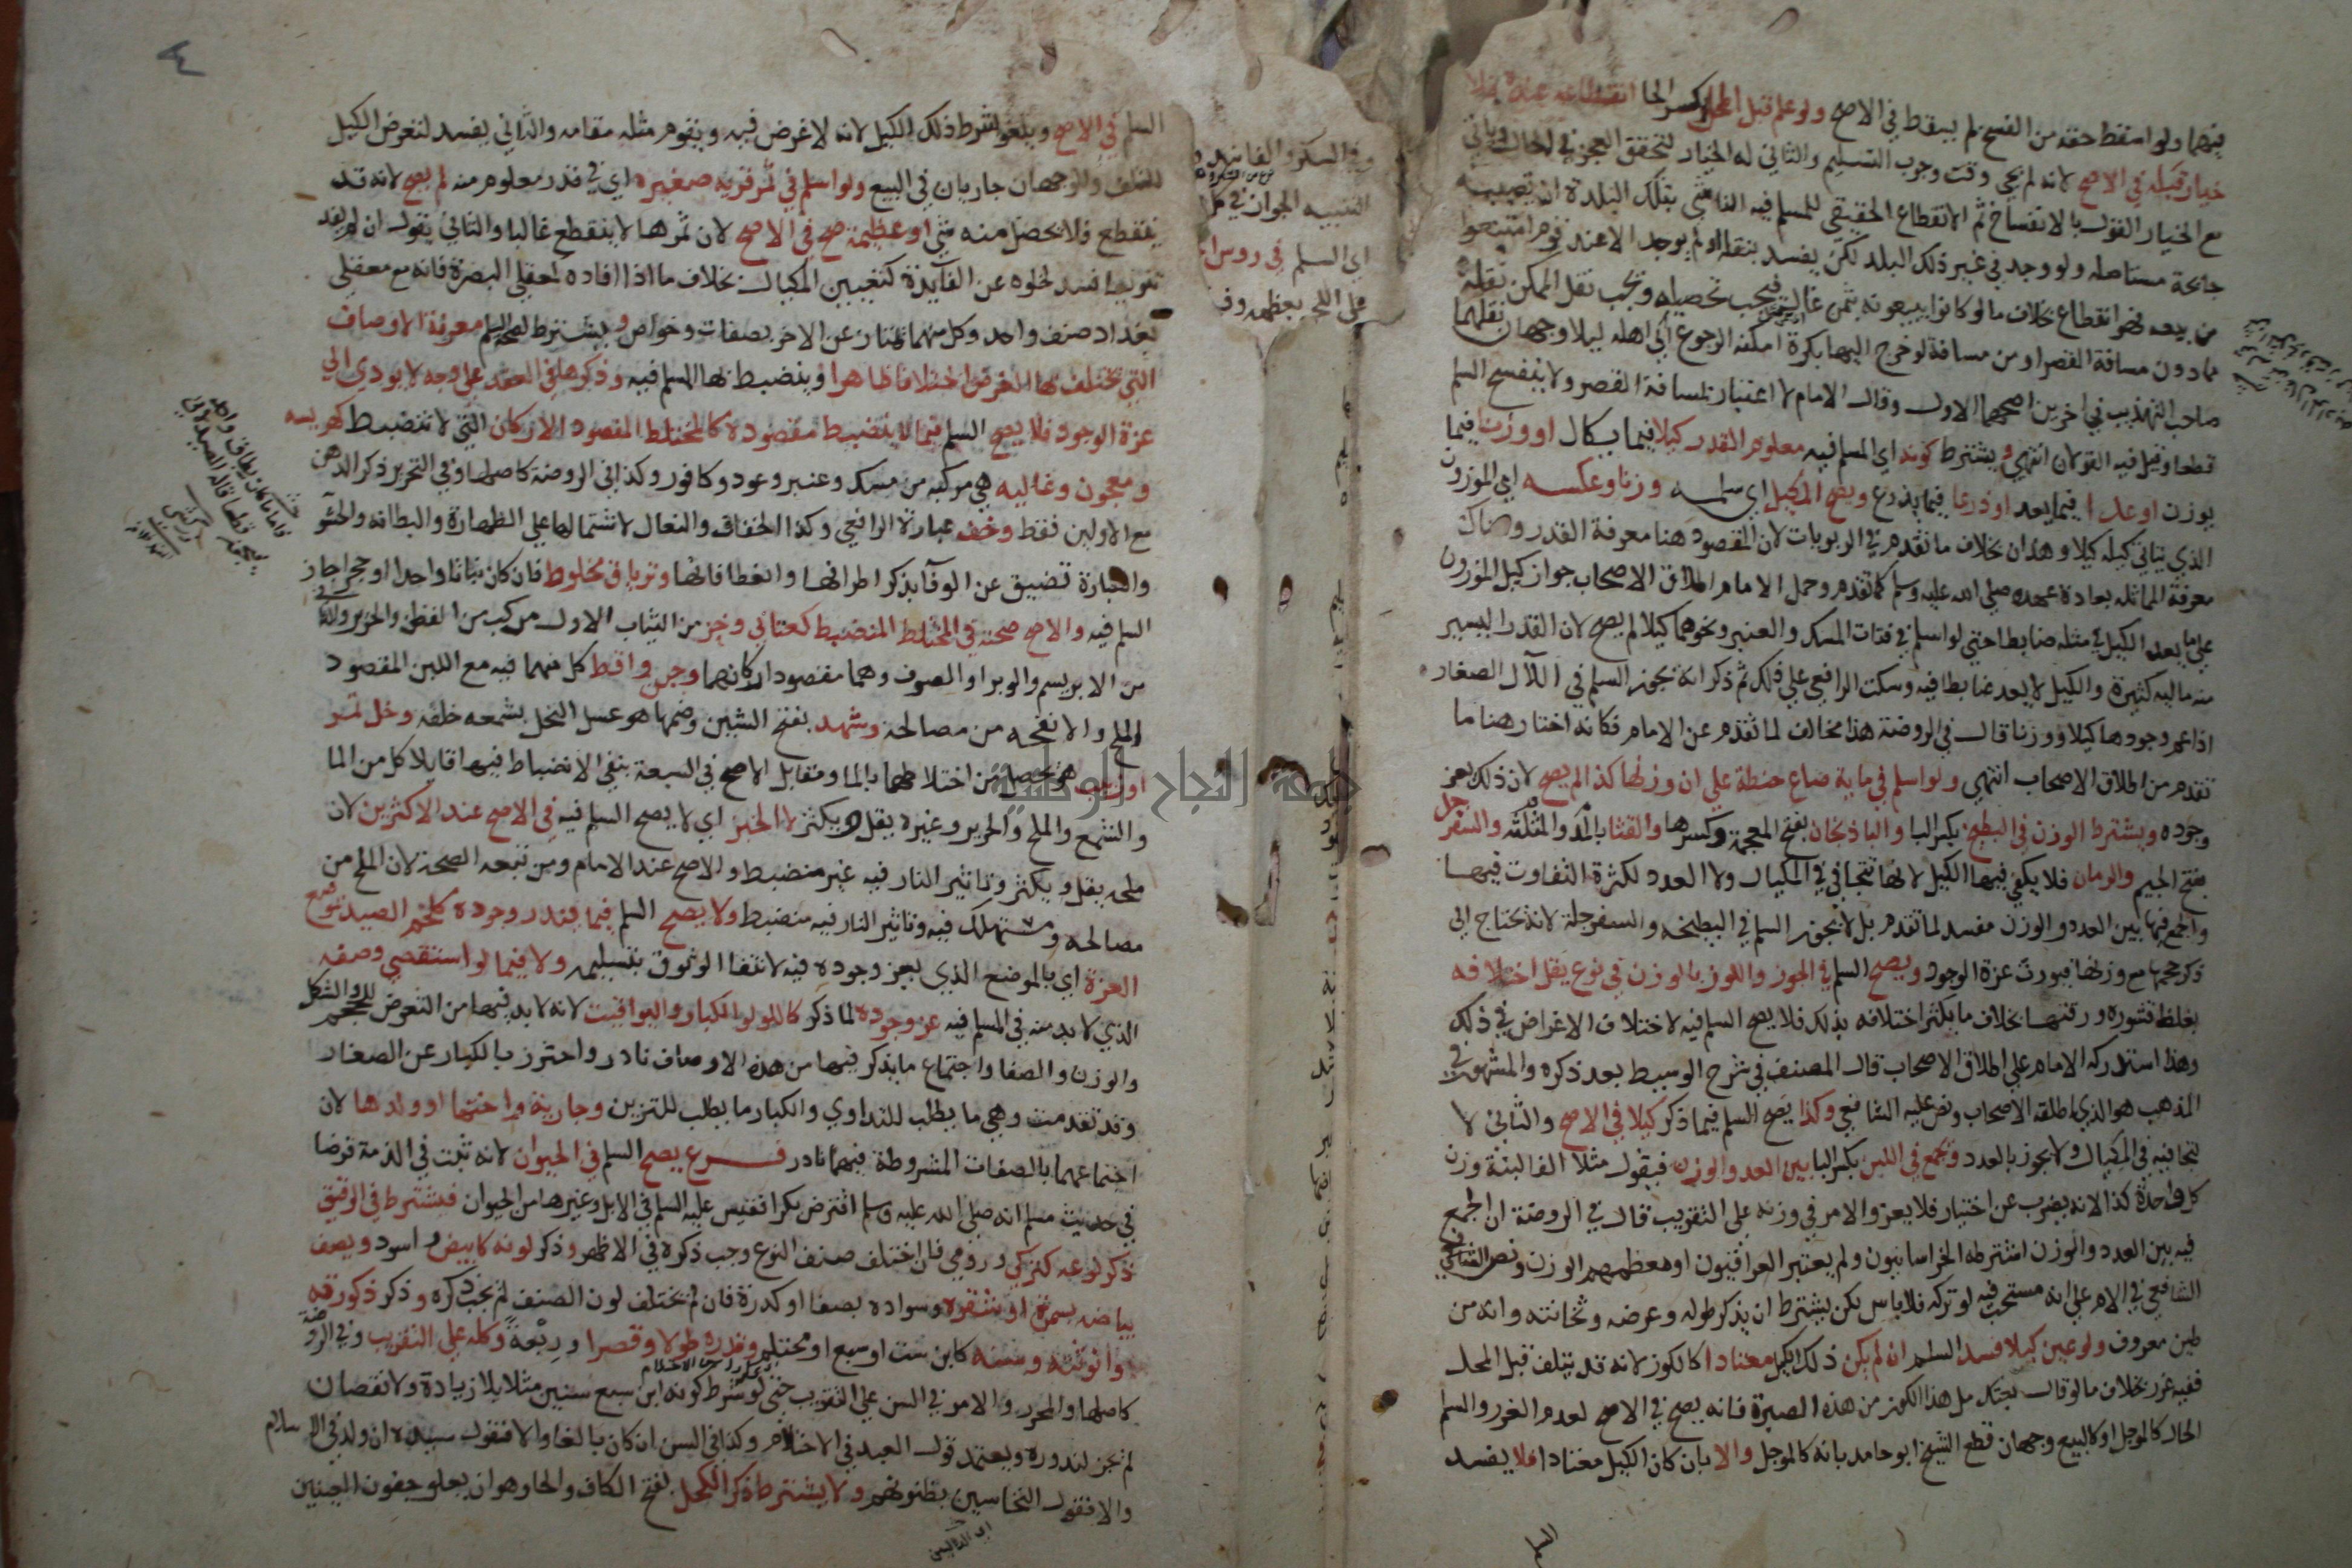 فيهما ولو اسقط حقه من الفسخ لم يسقط في الاصح ولو علم قبل المحل بكسر الحا انقطاعه عنده فلا
خيار قبله في الاصح لانه لم يجي وقت وجوب التسليم والثاني له الخيار لتحقق العجز في الحال وياتي
مع الخيار القول بالانفساخ ثم الانقطاع الحقيقي للمسلم فيه الناشي بتلك البلدة ان تصيبه
جايحة مستاصله ولو وجد في غير ذلك البلد لكن يفسد بنقله او لم يوجد الا عند قوم امتنعوا
من بيعه فهو انقطاع بخلاف ما لو كانوا يبيعونه بثمن غال فيجب تحصيله ويجب نقل الممكن نقله
مما دون مسافة القصر او من مسافة لو خرج اليها بكرة امكنه الرجوع الى اهله ليلا وجهان نقلهما
صاحب التهذيب في اخرين اصحهما الاول وقال الامام لا اعتبار بمسافة القصر ولا ينفسخ السلم
قطعا وقيل فيه القولان انتهي ويشترط كونه اي المسلم فيه معلوم القدر كيلا فيما يكال او وزنا فيما
يوزن او عدا فيما يعد او ذرعا فيما يذرع ويصح المكيل اي سلمه وزنا وعكسه اي الموزون
الذي يتاتي كيله كيلا وهذان بخلاف ما تقدم في الربويات لان المقصود هنا معرفة القدر وهناك
معرفة المماثله بعادة عهده صلى الله عليه وسلم كما تقدم وحمل الامام اطلاق الاصحاب جواز كيل الموزون
على ما يعد الكيل في مثله ضابطا حتى لو اسلم في فتات المسك والعنبر ونحوهما كيلا لم يصح لان القدر اليسير
منه ماليه كثيرة والكيل لا يعد ضابطا فيه وسكت الرافعي على ذلك ثم ذكر انه يجوز السلم في اللآل الصغار
اذا عم وجودها كيلا ووزنا قال في الروضة هذا مخالف لما تقدم عن الامام فكانه اختار هنا ما
تقدم من اطلاق الاصحاب انتهي ولو اسلم في ماية صاع حنطة على ان وزنها كذا لم يصح لان ذلك يعز
وجوده ويشترط الوزن في البطيخ بكسر البا والباذنجان بفتح المعجمة وكسرها والقثا بالمد والمثلثه والسفرجل
بفتح الجيم والرمان فلا يكفي فيها الكيل لانها تتجافى في المكيال ولا العدد لكثرة التفاوت فيها
والجمع فيها بين العدد والوزن مفسد لما تقدم بل لا يجوز السلم في البطيخه والسفرجلة لانه يحتاج الى
ذكر حجمها مع وزنها فيورث عزة الوجود ويصح السلم في الجوز واللوز بالوزن في نوع يقل اختلافه
بغلظ قشوره ورقتها بخلاف ما يكثر اختلافه بذلك فلا يصح السلم فيه لاختلاف الاغراض في ذلك
وهذا استدركه الامام على اطلاق الاصحاب قال المصنف في شرح الوسيط بعد ذكره والمشهور في
المذهب هو الذي اطلقه الاصحاب ونص عليه الشافعي وكذا يصح السلم فيما ذكر كيلا في الاصح والثاني لا
لتجافيه في المكيال ولا يجوز بالعدد ويجمع في اللبن بكسر البا بين العد والوزن فيقول مثلا الف لبنة وزن
كل واحدة كذا لانه يضرب عن اختيار فلا يعز والامر في وزنه على التقريب قال في الروضة ان الجمع
فيه بين العدد والوزن اشترطه الخراسانيون ولم يعتبر العراقيون او معظمهم الوزن ونص الشافعي
الشافعي في الام على انه مستحب فيه لو تركه فلا باس لكن يشترط ان يذكر طوله وعرضه وثخانته وانه من
طين معروف ولو عين كيلا فسد السلم ان لم يكن ذلك الكيل معتادا كالكوز لانه قد يتلف قبل المحل
ففيه غرر بخلاف ما لو قال بعتك مل هذا الكوز من هذه الصبرة فانه يصح في الاصح لعدم الغرر والسلم
الحال كالموجل او كالبيع وجهان قطع الشيخ ابو حامد بانه كالموجل والا بان كان الكيل معتادا فلا يفسد
السلم
٤
السلم في الاصح ويلغو شرط ذلك الكيل لانه لا غرض فيه ويقوم مثله مقامه والثاني يفسد لتعرض الكيل
للتلف والوجهان جاريان في البيع ولو اسلم في ثمر قريه صغيره اي في قدر معلوم منه لم يصح لانه قد
ينقطع فلا يحصل منه شي او عظيمة صح في الاصح لان ثمرها لا ينقطع غالبا والثاني يقول ان لم يفد
تنويعا فسد لخلوه عن الفايدة كتعيين المكيال بخلاف ما اذا افاده كمعقلي البصرة فانه مع معقلي
بغداد صنف واحد وكل منهما يمتاز عن الاخر بصفات وخواص ويشترط لصحة السلم معرفة الاوصاف
التي تختلف بها الغرض اختلافا ظاهرا وينضبط بها المسلم فيه وذكرها في العقد على وجه لا يودي الى
عزة الوجود فلا يصح السلم فيما لا ينضبط مقصوده كالمختلط المقصود الاركان التي لا تنضبط كهريسه
ومعجون وغاليه هي مركبه من مسك وعنبر وعود وكافور وكذا في الروضة كاصلها وفي التحرير ذكر الدهن
مع الاولين فقط وخف عبارة الرافعي وكذا الخفاف والنعال لاشتمالها على الظهارة والبطانه والحشو
والعبارة تضيق عن الوفا بذكر اطرافها وانعطافاتها وترياق مخلوط فان كان نباتا واحدا او حجرا جاز
السلم فيه والاصح صحته في المختلط المنضبط كعتابي وخز من الثياب الاول مركب من القطن والحرير والثاني
من الابريسم والوبر او الصوف وهما مقصودا اركانهما وجبن واقط كل منهما فيه مع اللبن المقصود
الملح والانفحه من مصالحه وشهد بفتح الشين وضمها هو عسل النحل بشمعه خلقه وخل تمر
او زبيب هو يحصل من اختلاطهما بالما ومقابل الاصح في السبعة ينفي الانضباط فيها قايلا كل من الما
والشمع والملح والحرير وغيره يقل ويكثر لا الخبز اي لا يصح السلم فيه في الاصح عند الاكثرين لان
ملحه يقل ويكثر وتاثير النار فيه غير منضبط والاصح عند الامام ومن تبعه الصحة لان الملح من
مصالحه ومستهلك فيه وتاثير النار فيه منضبط ولا يصح السلم فيما يندر وجوده كلحم الصيد بموضع
العزة اي بالموضع الذي يعز وجوده فيه لانتفا الوثوق بتسليمه ولا فيما لو استقصي وصفه
الذي لا بد منه في المسلم فيه عز وجوده لما ذكر كاللولو الكبار واليواقيت لانه لا بد فيها من التعرض للحجم والشكل
والوزن والصفا واجتماع ما يذكر فيها من هذه الاوصاف نادر واحترز بالكبار عن الصغار
وقد تقدمت وهي ما يطلب للتداوي والكبار ما يطلب للتزين وجارية واختها او ولدها لان
اجتماعهما بالصفات المشروطة فيهما نادر فرع يصح السلم في الحيوان لانه ثبت في الذمة قرضا
في حديث مسلم انه صلى الله عليه وسلم اقترض بكرا فقيس عليه السلم في الابل وغيرها من الحيوان فيشترط في الرقيق
ذكر نوعه كتركي ورومي فان اختلف صنف النوع وجب ذكره في الاظهر وذكر لونه كابيض واسود ويصف
بياضه بسمرة او شقرة وسواده بصفا او كدرة فان لم يختلف لون الصنف لم يجب ذكره وذكر ذكورته
وانوثته وسنه كابن ست او سبع او محتلم وقدره طولا وقصرا وربعة وكله على التقريب وفي الروضة
كاصلها والمحرر والامر في السن على التقريب حتى لو شرط كونه ابن سبع سنين مثلا بلا زيادة ولا نقصان
لم يجز لندوره ويعتمد قول العبد في الاحتلام وكذا في السن ان كان بالغا والا فقول سيده ان ولد في الاسلام
والا فقول النخاسين بظنونهم ولا يشترط ذكر الكحل بفتح الكاف والحا وهو ان يعلو جفون العينين
اي الدلالين
وفي السكر والفانيد و
التنبيه الجواز في
اي السلم في روس
على اللحم بعظمه وف
جامعة النجاح الوطنية